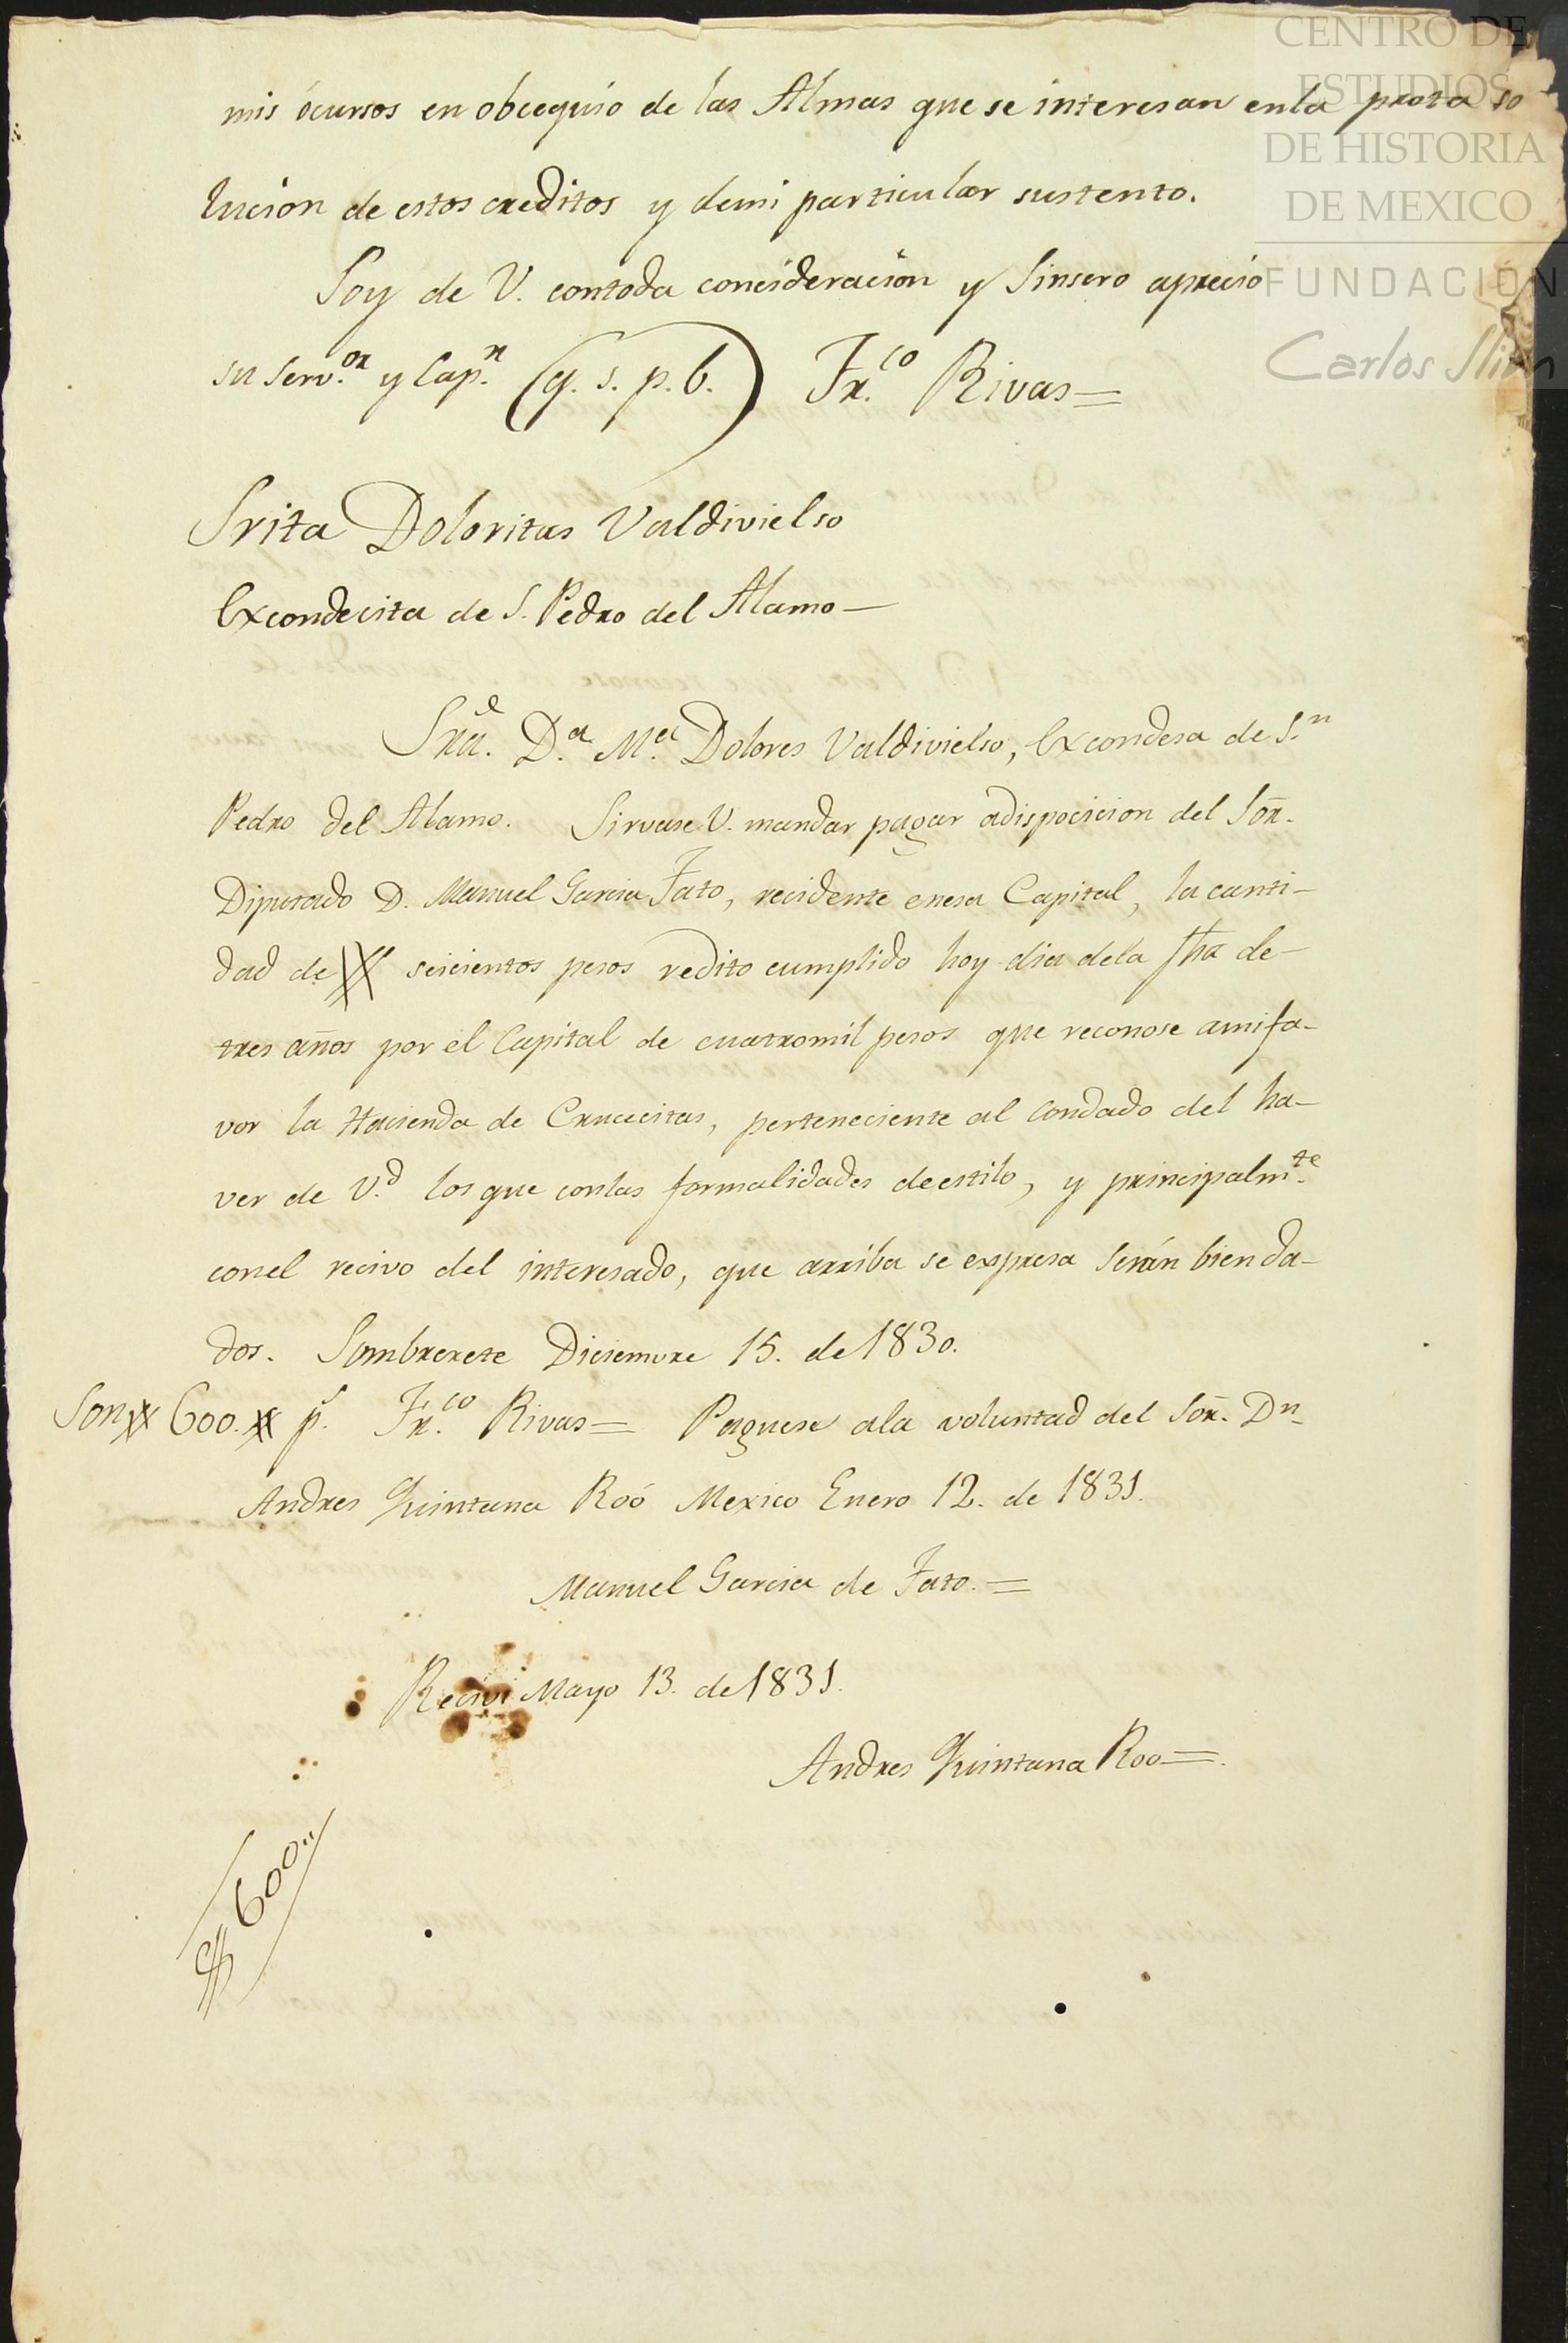 CENTRO DE
ESTUDIOS
DE HISTORIA
DE MEXICO
FUNDACIÓN
Carlos Slim
mis ócursos en obcequio de las Almas que se interesan enla prota so
lucion de estos creditos y demi particular sustento.
Soy de V. contoda concideracion y Sinsero aprecio
su Serv.or y Cap.n (q. s. p. b.) Fr.co Rivas=
Srita Doloritas Valdivielso
Excondecita de S. Pedro del Alamo—
Sra. D.a M.a Dolores Valdivielso, Excondesa de S.n
Pedro del Alamo. Sirvase V. mandar pagar adispocicion del Sõr.
Diputado D. Manuel Garcia Tato, recidente enesa Capital, la canti-
dad de seicientos pesos redito cumplido hoy dia dela fha de-
tres años por el Capital de cuatromil pesos que reconose amifa-
vor la Hacienda de Crucecitas, perteneciente al Condado del ha-
ver de V.d los que conlas formalidades deestilo, y principalm.te
conel recivo del interesado, que arriba se expresa Serán bien da-
dos. Sombrerete Diciemvre 15. de 1830.
Son 600. p.s Fr.co Rivas= Paguese ala voluntad del Sõr. Dn.
Andres Quintana Roó Mexico Enero 12. de 1831.
Manuel Garcia de Tato.=
Recivi Mayo 13. de 1831.
Andres Quintana Roo=.
$ 600.,,